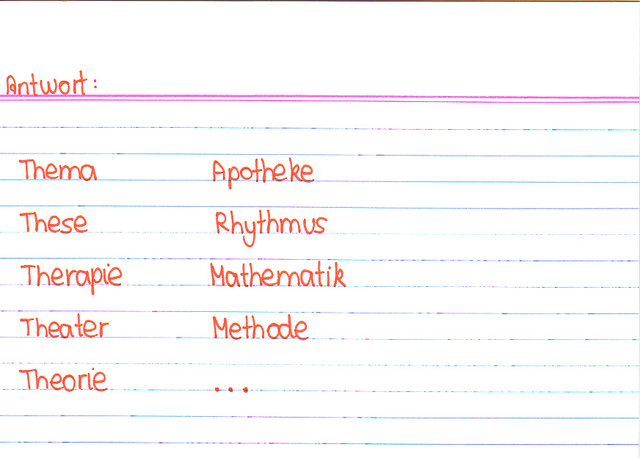 Antwort:
Thema Apotheke
These Rhythmus
Therapie Mathematik
Theater Methode
Theorie ...